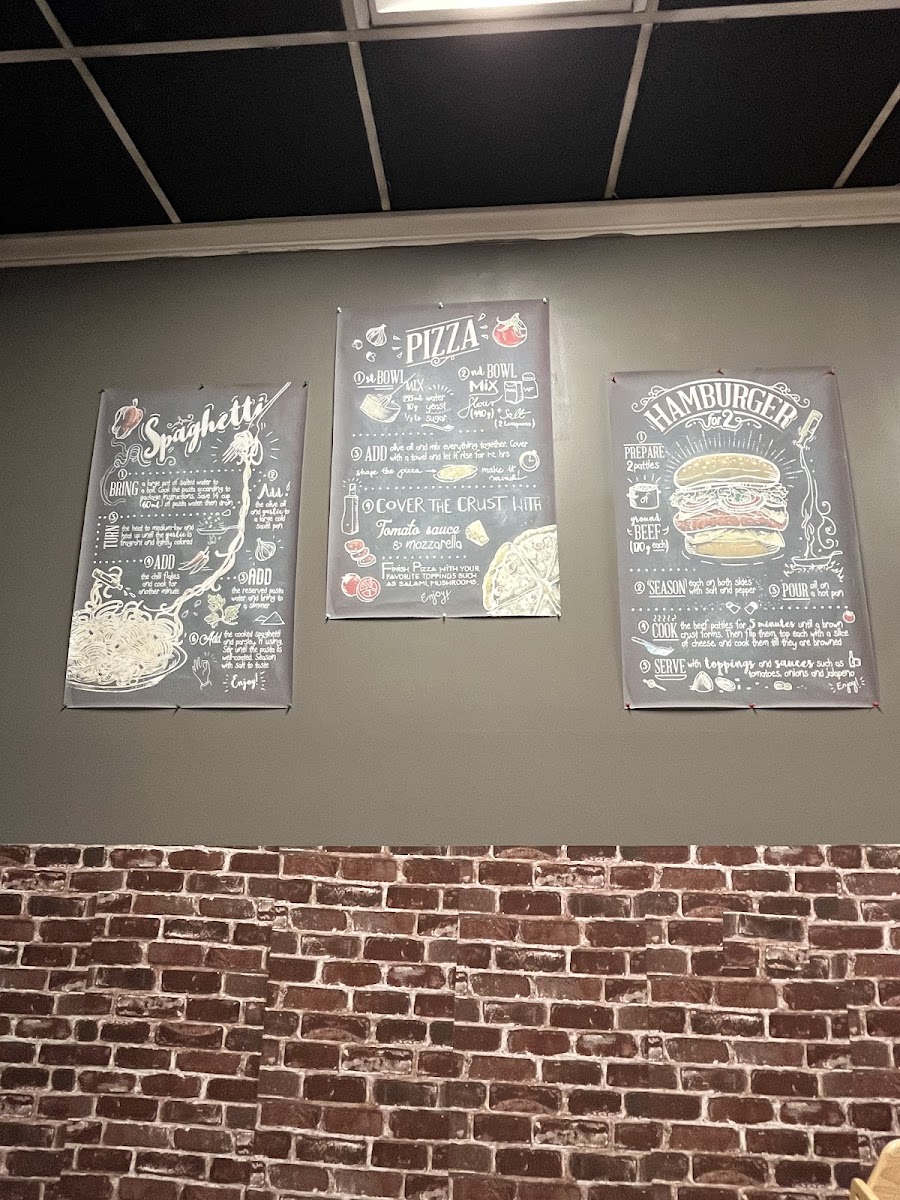 Spaghetti
1
BRING
a large pot of salted water to
a boil. Cook the pasta according to
package instructions. Save 1/4 cup
(60ml) of pasta water, then drain
2
Add
the olive oil
and garlic to
a large cold
sauté pan
3
TURN
the heat to medium-low and
heat up until the garlic is
fragrant and lightly colored
4 ADD
the chili flakes
and cook for
another minute
5 ADD
the reserved pasta
water and bring to
a simmer
6 Add
the cooked spaghetti
and parsley, if using.
Stir until the pasta is
well-coated. Season
with salt to taste
Enjoy!
PIZZA
1st BOWL
MIX
water
10g yeast
sugar
2nd BOWL
MIX
flour
+ Salt
(2 teaspoons)
3 ADD olive oil and mix everything together. Cover
with a towel and let it rise for hrs
shape the pizza make it
round
4 COVER THE CRUST WITH
Tomato sauce
& mozzarella
FINISH PIZZA WITH YOUR
FAVORITE TOPPINGS SUCH
AS SALAMI, MUSHROOMS.
Enjoy
HAMBURGER
for 2
1
PREPARE
2 patties
of
ground
BEEF
(170g each)
2 SEASON each on both sides
with salt and pepper
3 POUR oil on
a hot pan
4 COOK the beef patties for 3 minutes until a brown
crust forms. Then flip them, top each with a slice
of cheese and cook them till they are browned
5 SERVE with toppings and sauces such as
tomatoes, onions and jalapeno
Enjoy!